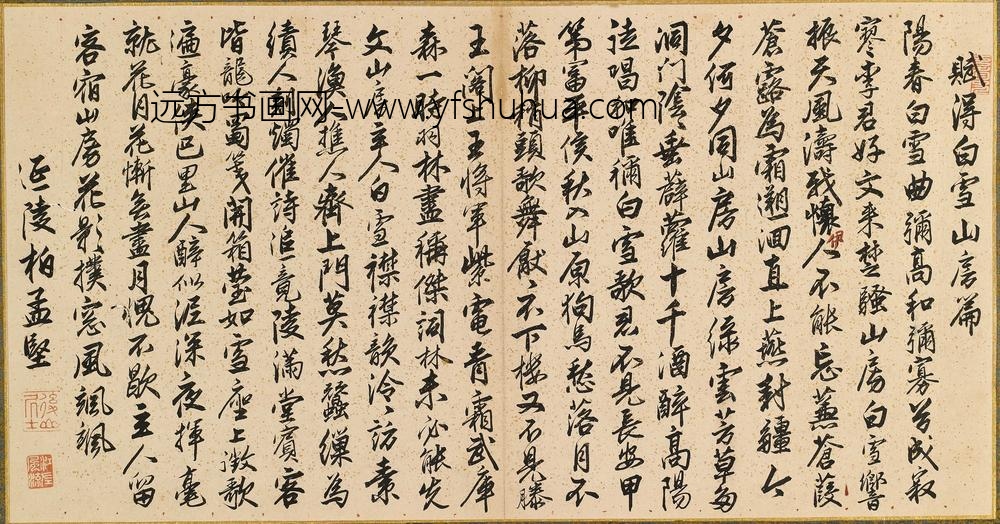 賦得白雪山房篇
陽春白雪曲彌高和彌寡兮成寂
寥李君好文來楚騷山房白雪響
振天風濤我懷人不能忘蒹蒼葭
伊
蒼露為霜溯洄直上燕封疆今
夕何夕同山房山房綠雲芳草
洞門陰垂薜蘿十千酒醉高陽
徒唱唯彌白雪歌君不見長安甲
第富平侯秋入山原狗馬愁落月不
落柳梢頭歌舞厭不下樓又不見滕
王閣王將軍紫電青霜武庫
森一時羽林盡稱傑詞林未必能先
文山房主人白雪襟襟韻泠泠訪素
琴漁人樵人齊上門莫愁蠶繅為
績人刻燭催詩追竟陵滿堂賓客
皆龍吟雷箋開箱瑩如雪座上徵歌
遍豪俠巴里山人醉似泥深夜揮毫
就花月花慚無盡月愧不歇主人留
客宿山房花影撲窗風颯颯
延陵柏孟堅
远方书画网-www.yfshuhua.com